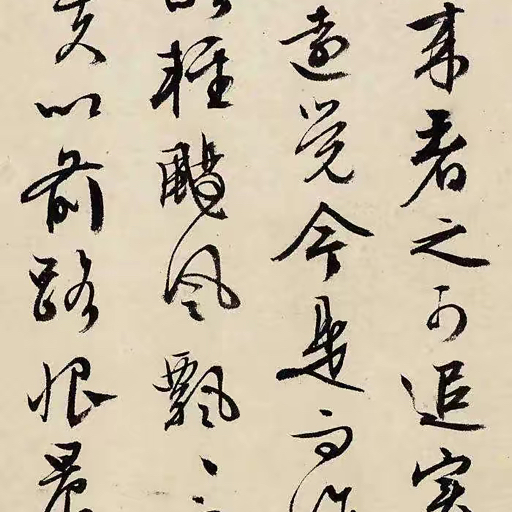 來者之可追實
遠覺今是而昨
以輕颺風飄〻
夫以前路恨晨